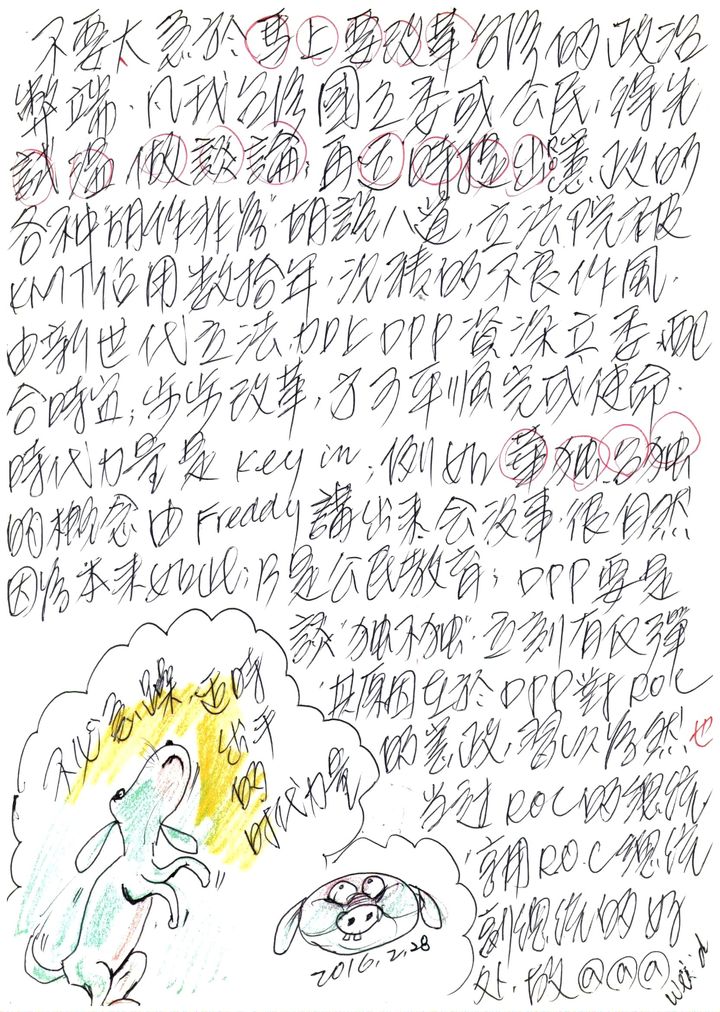 不要太急於馬上要改革台灣的政治
弊端,凡我台灣國立委或公民,得先
試探做談論;再適時提出ROC憲政的
各种胡作非為 胡說八道,立法院被
KMT佔用數拾年,沉積的不良作風,
由新世代立法加上DPP資深立委,配
合時宜;步步改革,才可平順完成使命.
時代力量是Key in,例如華独 台独
的概念由Freddy講出來,会沒事,很自然
因為本來如此;乃是公民教育;DPP要是
談"独不独",立刻有反彈
其原因在於DPP對ROC
的憲政,習以為然也
当过ROC的總統
享用ROC總統
到總統的好
處,故@@@
不必急躁,适時
出手
的
時代力量
2016.2,28